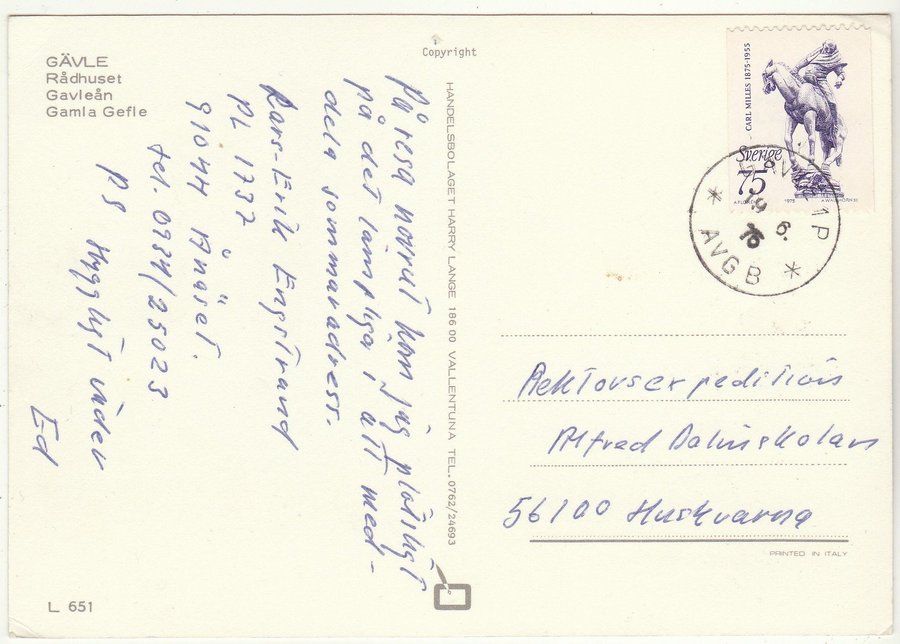 GÄVLE
Rådhuset
Gavleån
Gamla Gefle
Copyright
På resa norrut kom jag plötsligt
på det lämpliga i att med-
dela sommaradress.
Lars-Erik Engstrand
PL 1737
91044 Ånäset.
tel. 0934/25023
PS Hyggligt väder
Ed
L 651
HANDELSBOLAGET HARRY LANGE 186 00 VALLENTUNA TEL. 0762/24693
CARL MILLES 1875-1955
Sverige
75
1975
19 6. 76
* AVG B *
Rektorsexpeditionen
Alfred Dalinskolan
56100 Huskvarna
PRINTED IN ITALY